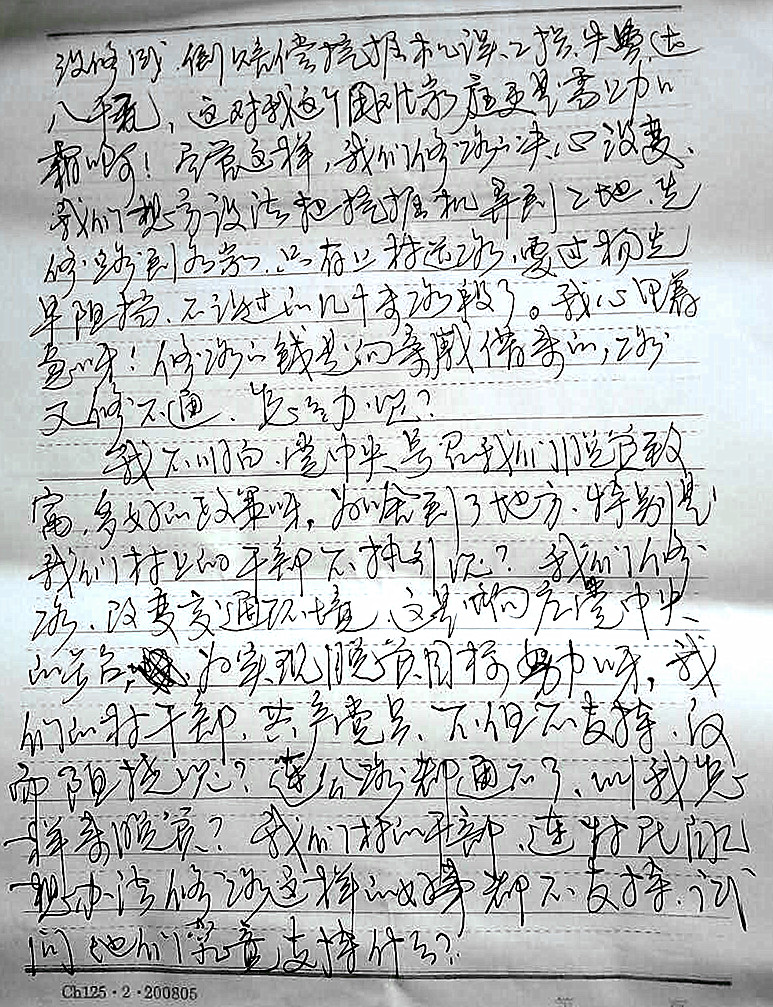 没修成，倒赔偿挖掘机误工损失费达
八千元，这对我这个困难家庭更是雪上加
霜呀！尽管这样，我们修路的决心没变、
我们想方设法把挖掘机弄到工地，先
修路到各家，只有上村道路，要过杨先
早阻挡、不让过的几十米路段了。我心里着
急呀！修路的钱是向亲戚借来的，路
又修不通、怎么办呢？
我不明白，党中央号召我们脱贫致
富，多好的政策呀，为啥到了地方，特别是
我们村上的干部不执行呢？我们修
路，改变交通环境，这是响应党中央
的号召，为实现脱贫目标努力呀，我
们的村干部，共产党员，不但不支持，反
而阻挠呢？连公路都通不了，叫我怎
样来脱贫？我们村的干部，连村民自己
想办法修路这样的好事都不支持，试
问他们究竟支持什么？
Ch125·2·200805